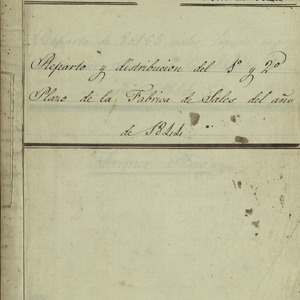 Reparto y distribución del 1º y 2º
Plazo de la Fabrica de Sales del año
de 1844